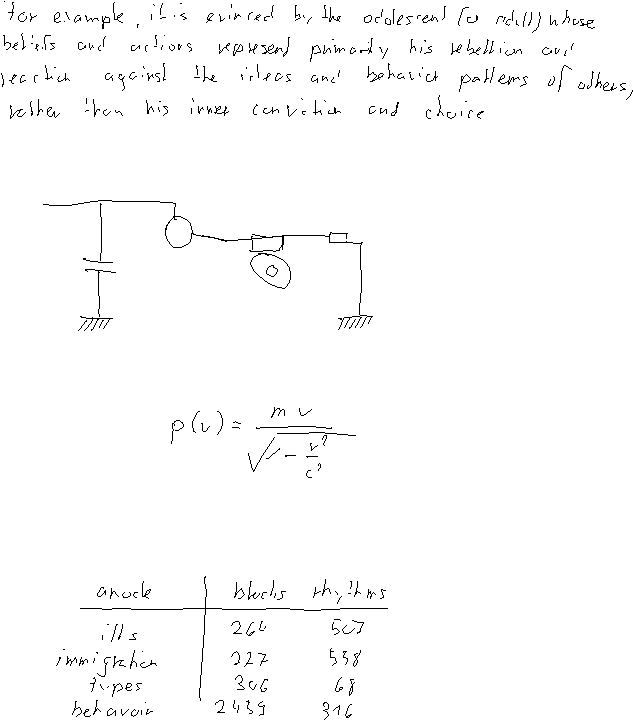 for example, it is evinced by the adolescent (or adult) whose
beliefs and actions represent primarily his rebellion and
reaction against the ideas and behavior patterns of others,
rather than his inner conviction and choice
p(v) = mv / √(1 - v²/c²)
anode blocks rhythms
ills 264 507
immigration 227 538
types 306 68
behavoir 2439 316